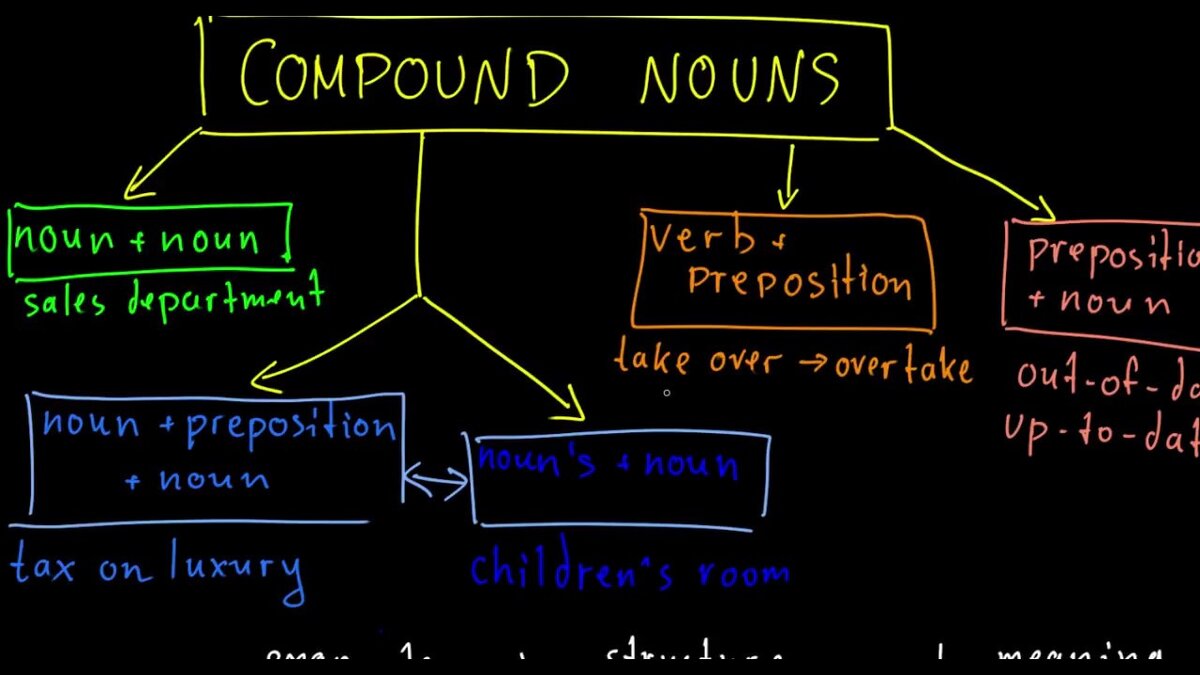 COMPOUND NOUNS
noun + noun
sales department
verb +
preposition
take over → overtake
prepositio
+ noun
out-of-da
up-to-dat
noun + preposition
+ noun
tax on luxury
noun's + noun
children's room
structure meaning